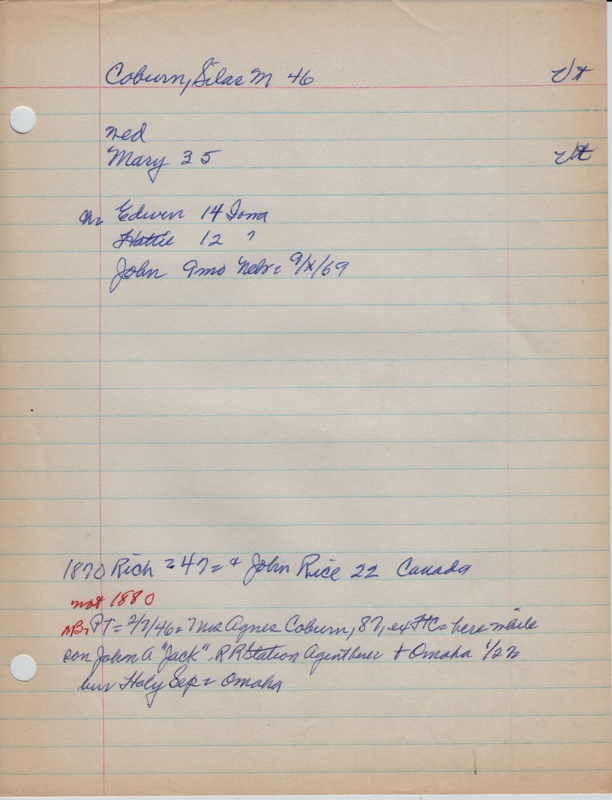 Coburn, Silas M 46 Vt
wed
Mary 35 Vt
ch= Edwin 14 Iowa
Hattie 12 ?
John 9mo Nebr= 9/x/69
1870 Rich =47= + John Rice 22 Canada
not 1880
NB= PT= 2/7/46= Mrs Agnes Coburn, 87, ex FC= here while
son John A "Jack" RR Station Agent here + Omaha
bur Holy Sep= Omaha